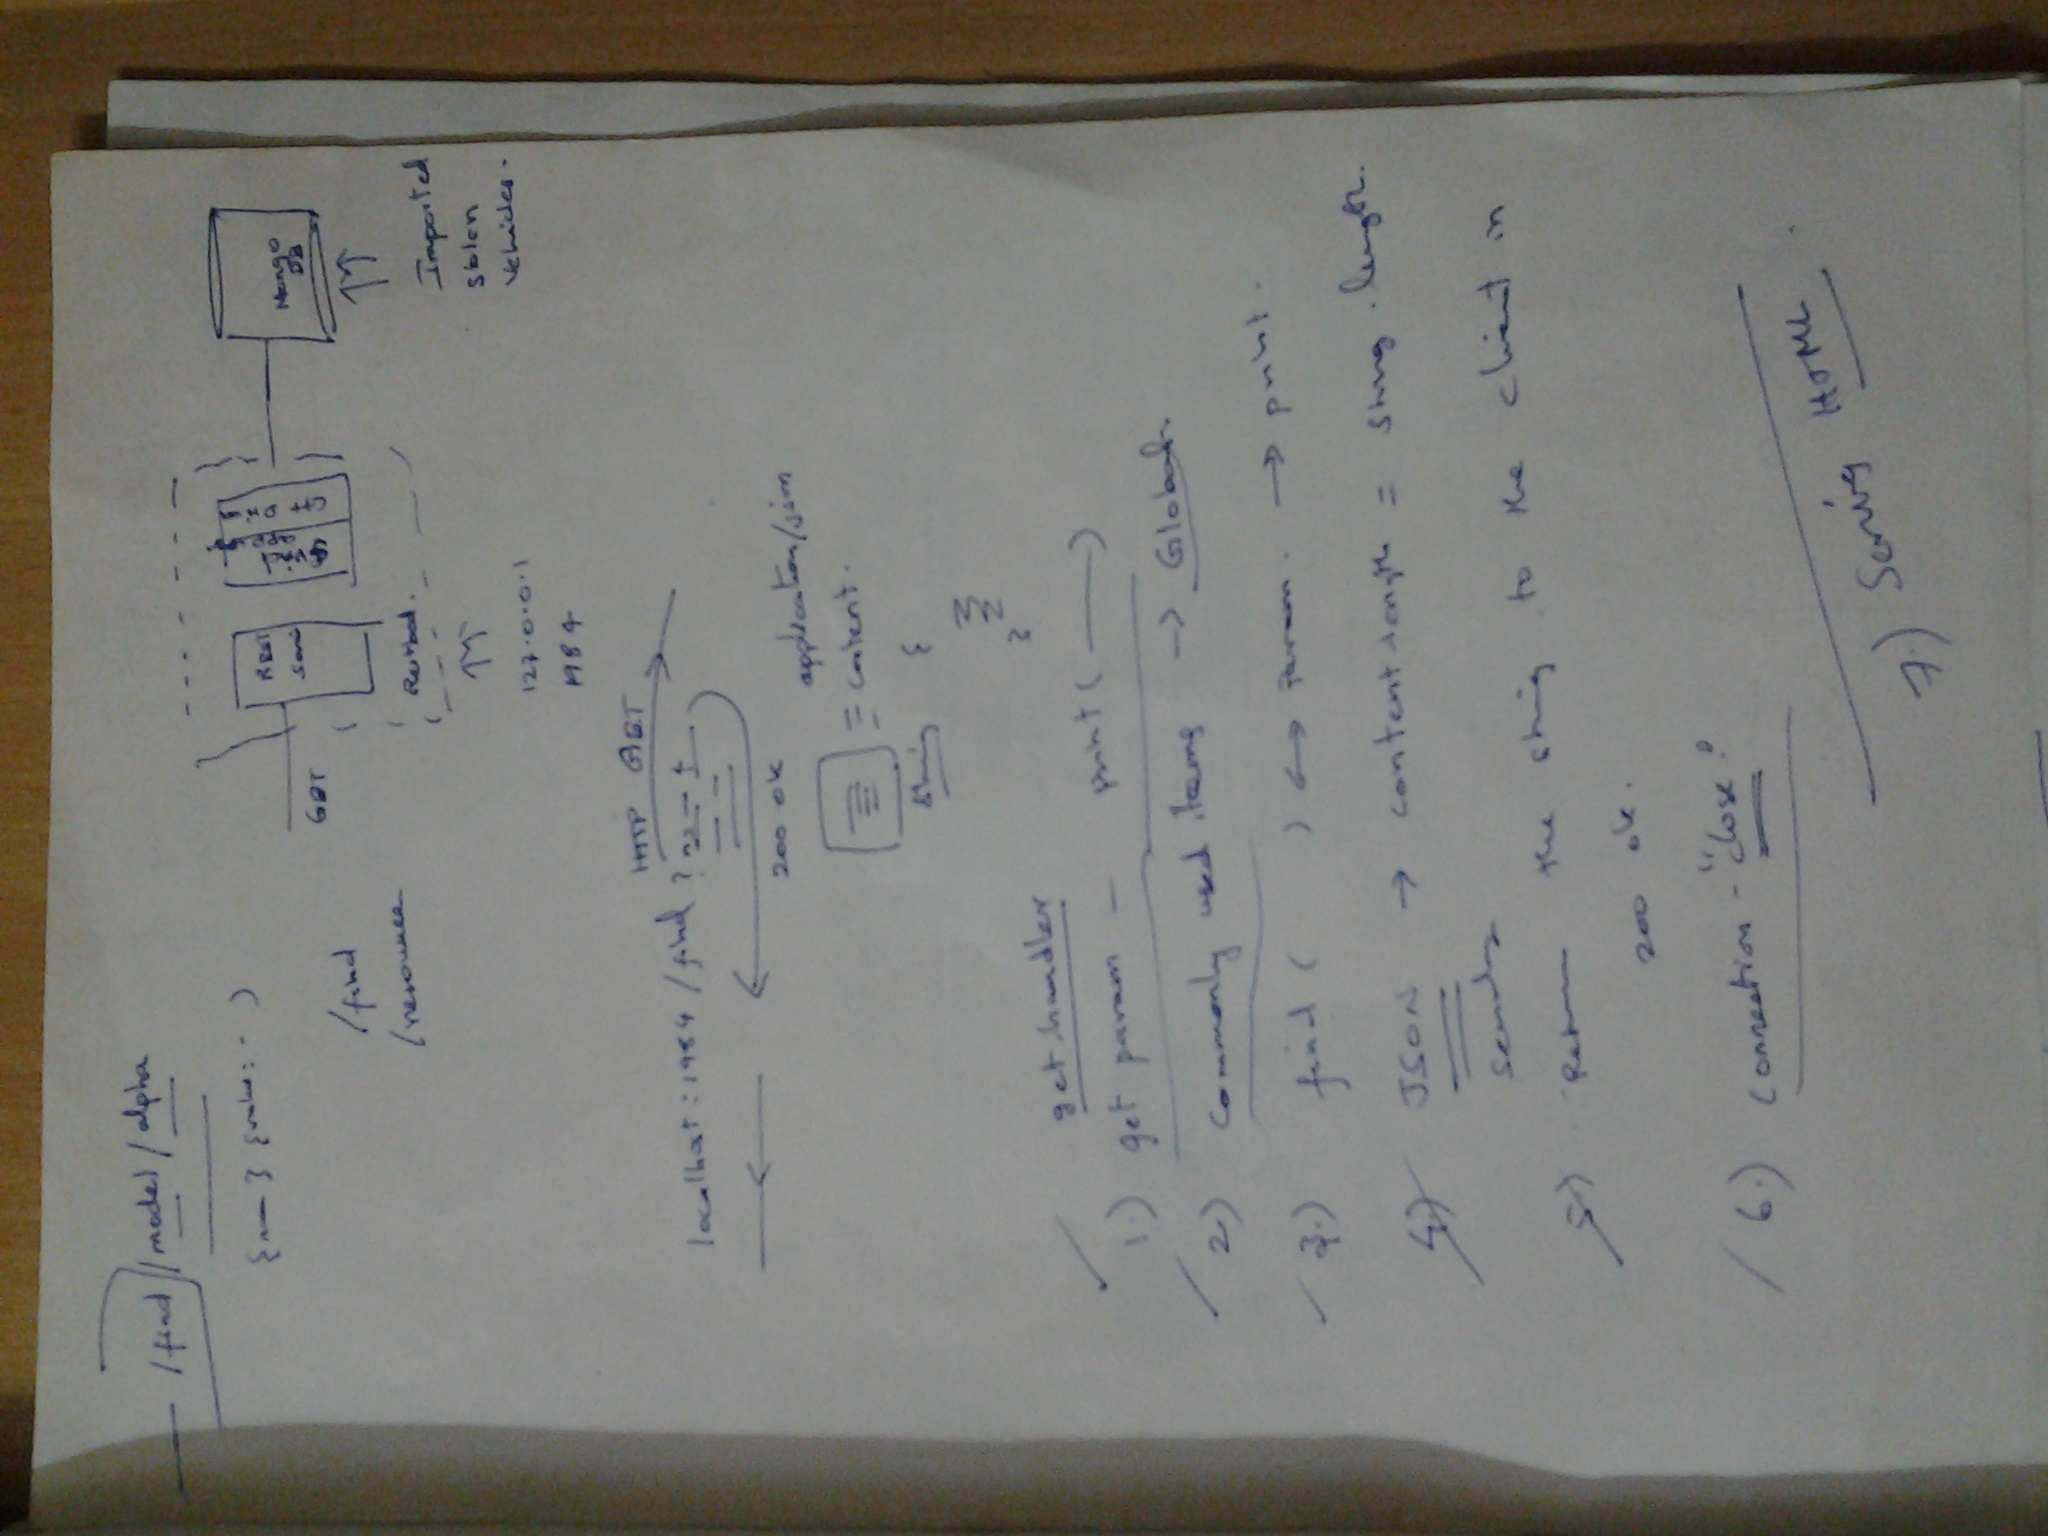 /find /model/alpha
{ } { value: . )
/find
GET
REST
Mongo
DB
Imported
stolen
vehicles.
127.0.0.1
1984
HTTP GET
localhost:1984/find?
200 OK
application/json
= content.
string
get handler
1.) get param - print( )
2) commonly used items → Global.
3.) find ( ) ↔ param. → print.
4) JSON → content length = string.length.
5) Return the string to the client in
200 ok.
6.) connection - "close"
7.) Serving HTML.